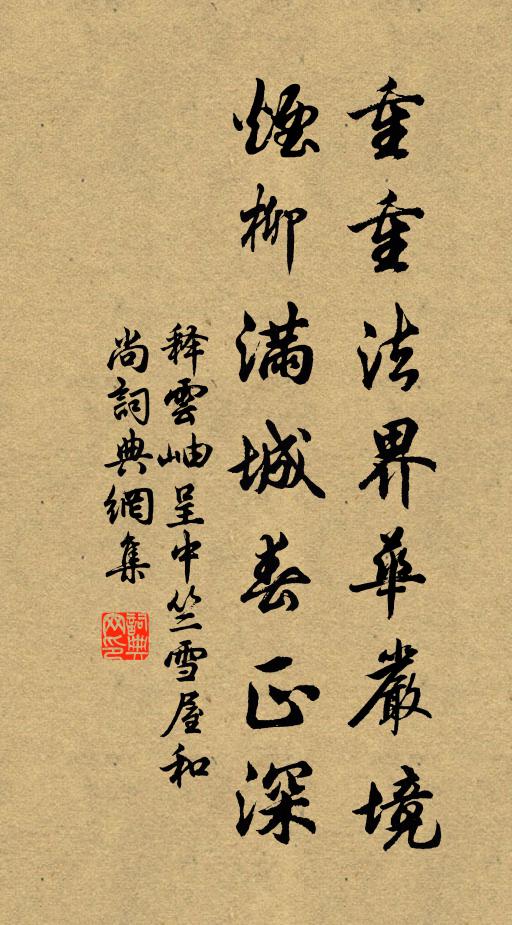 重重法界華嚴境
煙柳滿城春正深
释雲岫呈中竺雪屋和
尚詞典網集
詞典網印